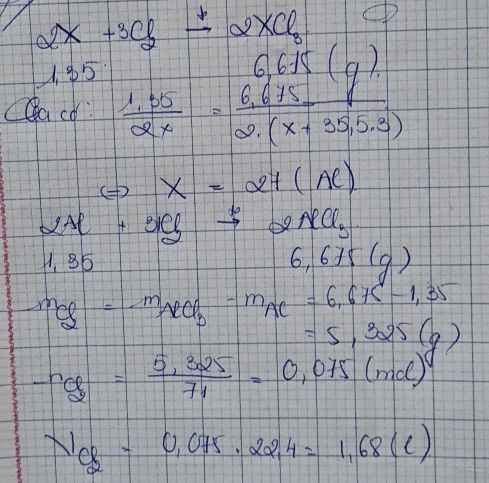 2X + 3Cl₂ →(t°) 2XCl₃
1,35 6,675 (g).
Ta có: 1,35/2x = 6,675/2.(x+35,5.3)
⇔ X = 27 (Al)
2Al + 3Cl₂ →(t°) 2AlCl₃
1,35 6,675 (g)
mCl₂ = mAlCl₃ - mAl = 6,675 - 1,35
= 5,325 (g)
nCl₂ = 5,325/71 = 0,075 (mol)
VCl₂ = 0,075 . 22,4 = 1,68 (l)